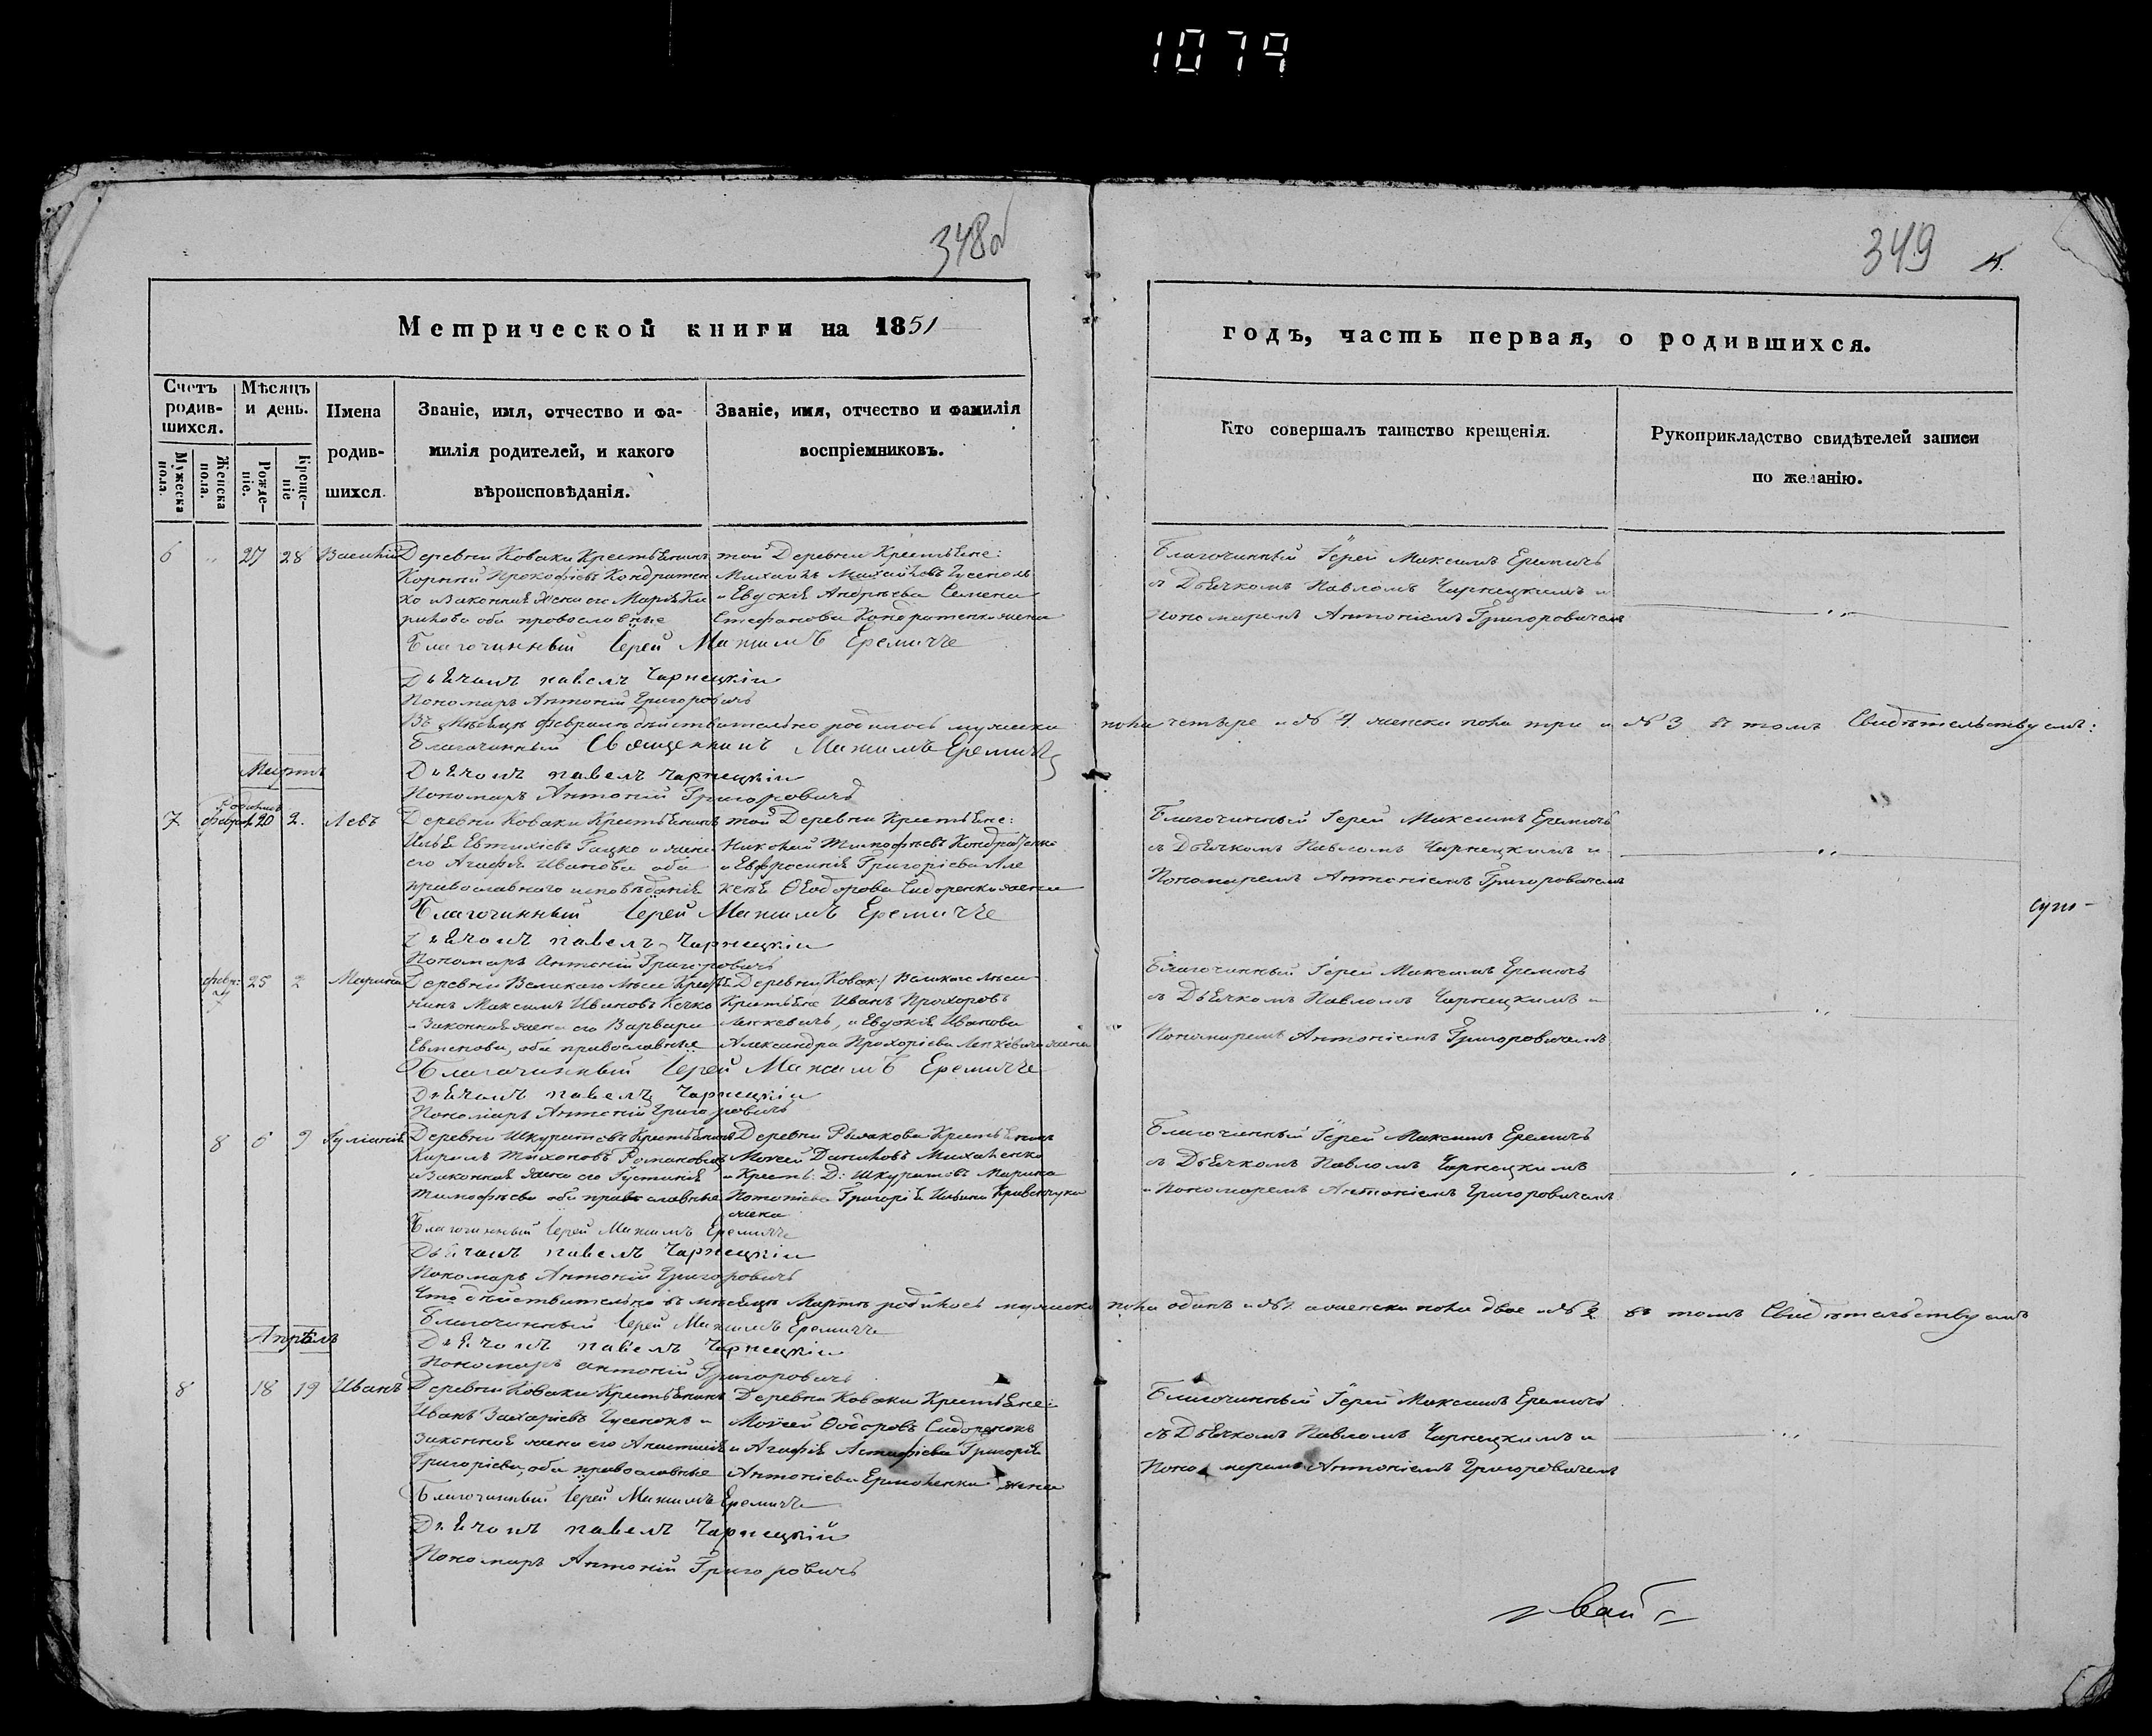 1079
348об
349
4.
Метрической книги на 1851
годъ, часть первая, о родившихся.
Счетъ родив-шихся.
Мужеска пола.
Женска пола.
Мѣсяцъ и день.
Рожде-ніе.
Креще-ніе
Имена
родив-
шихся.
Званіе, имя, отчество и фа-
милія родителей, и какого
вѣроисповѣданія.
Званіе, имя, отчество и фамилія
воспріемниковъ.
Кто совершалъ таинство крещенія.
Рукоприкладство свидѣтелей записи
по желанію.
6 „ 27 28 Василій
Деревни Коваки Крестьянинъ
Корнѣй Прокофіевъ Кондратен
ко и законная жена его Марія Ки
рикова оба православные
той Деревни Крестьяне:
Михаилъ Михайловъ
и Евдокія Андреева Семена
Стефанова Кондратенка жена
Благочинный Іерей Максимъ Еремичъ
съ Дьячкомъ Павломъ Чарнецкимъ и
Пономаремъ Антоніемъ Григоровичемъ
Благочинный Іерей Максимъ Еремичъ
Дьячокъ павелъ Чарнецкій
Пономарь Антоній Григоровичъ
Въ мѣсяцѣ февралѣ дѣйствительно родилось мужеска пола четыре и № 4 женска пола три и № 3 въ томъ Свидѣтельствуемъ:
Благочинный Священникъ Максимъ Еремичъ
Дьячокъ павелъ Чарнецкій
Пономарь Антоній Григоровичъ
Мартъ
7 феврал. 20 2. Левъ
Деревни Коваки Крестьянинъ
Илья Евтихіевъ Гацко и жена
его Агафія Иванова оба
православнаго исповѣданія
той Деревни Крестьяне:
Николай Тимофѣевъ Кондратенко
и Евфросинія Григоріева Але
ксѣя Ѳеодорова Сидоренка жена
Благочинный Іерей Максимъ Еремичъ
съ Дьячкомъ Павломъ Чарнецкимъ и
Пономаремъ Антоніемъ Григоровичемъ
Благочинный Іерей Максимъ Еремичъ
Дьячокъ павелъ Чарнецкій
Пономарь Антоній Григоровичъ
февр: 25 2 Марина
Деревни Великаго Лѣса Крестья
нинъ Максимъ Ивановъ Кечко
и Законная жена его Варвара
оба православные
Деревни Великаго Лѣса
Крестьяне Иванъ Прохоровъ
Ленкевичъ, и Евдокія Иванова
Александра Прохоріева Ленкевича жена
Благочинный Іерей Максимъ Еремичъ
съ Дьячкомъ Павломъ Чарнецкимъ и
Пономаремъ Антоніемъ Григоровичемъ
Благочинный Іерей Максимъ Еремичъ
Дьячокъ павелъ Чарнецкій
Пономарь Антоній Григоровичъ
8 6 9 Іуліанія
Деревни Шкуратовъ Крестьянинъ
Кирилъ Тихоновъ Романовецъ
и Законная жена его Іустинія
Тимофѣева оба православные
Деревни Рычакова Крестьянинъ
Моисей Даниловъ Михаленко
и Крест: Д: Шкуратовъ Марина
Потапіева Григорія Ильина Кравончука
жена
Благочинный Іерей Максимъ Еремичъ
съ Дьячкомъ Павломъ Чарнецкимъ
и Пономаремъ Антоніемъ Григоровичемъ
Благочинный Іерей Максимъ Еремичъ
Дьячокъ павелъ Чарнецкій
Пономарь Антоній Григоровичъ
Что дѣйствительно въ мѣсяцѣ Мартѣ родилось мужеска пола одинъ и №1. а женска пола двое и № 2 въ томъ Свидѣтельствуемъ
Благочинный Іерей Максимъ Еремичъ
Дьячокъ павелъ Чарнецкій
Пономарь антоній Григоровичъ
Апрѣль
8 18 19 Иванъ
Деревни Коваки Крестьянинъ
Иванъ Захаріевъ Гусенокъ и
законная жена его Анастасія
Григоріева, оба православные
Деревни Коваки Крестьяне:
Моисей Ѳодоровъ Сидоренокъ
и Агафія Астафіева Григорія
Антоніева Ермоленка жена
Благочинный Іерей Максимъ Еремичъ
съ Дьячкомъ Павломъ Чарнецкимъ и
Пономаремъ Антоніемъ Григоровичемъ
Благочинный Іерей Максимъ Еремичъ
Дьячокъ павелъ Чарнецкій
Пономарь Антоній Григоровичъ